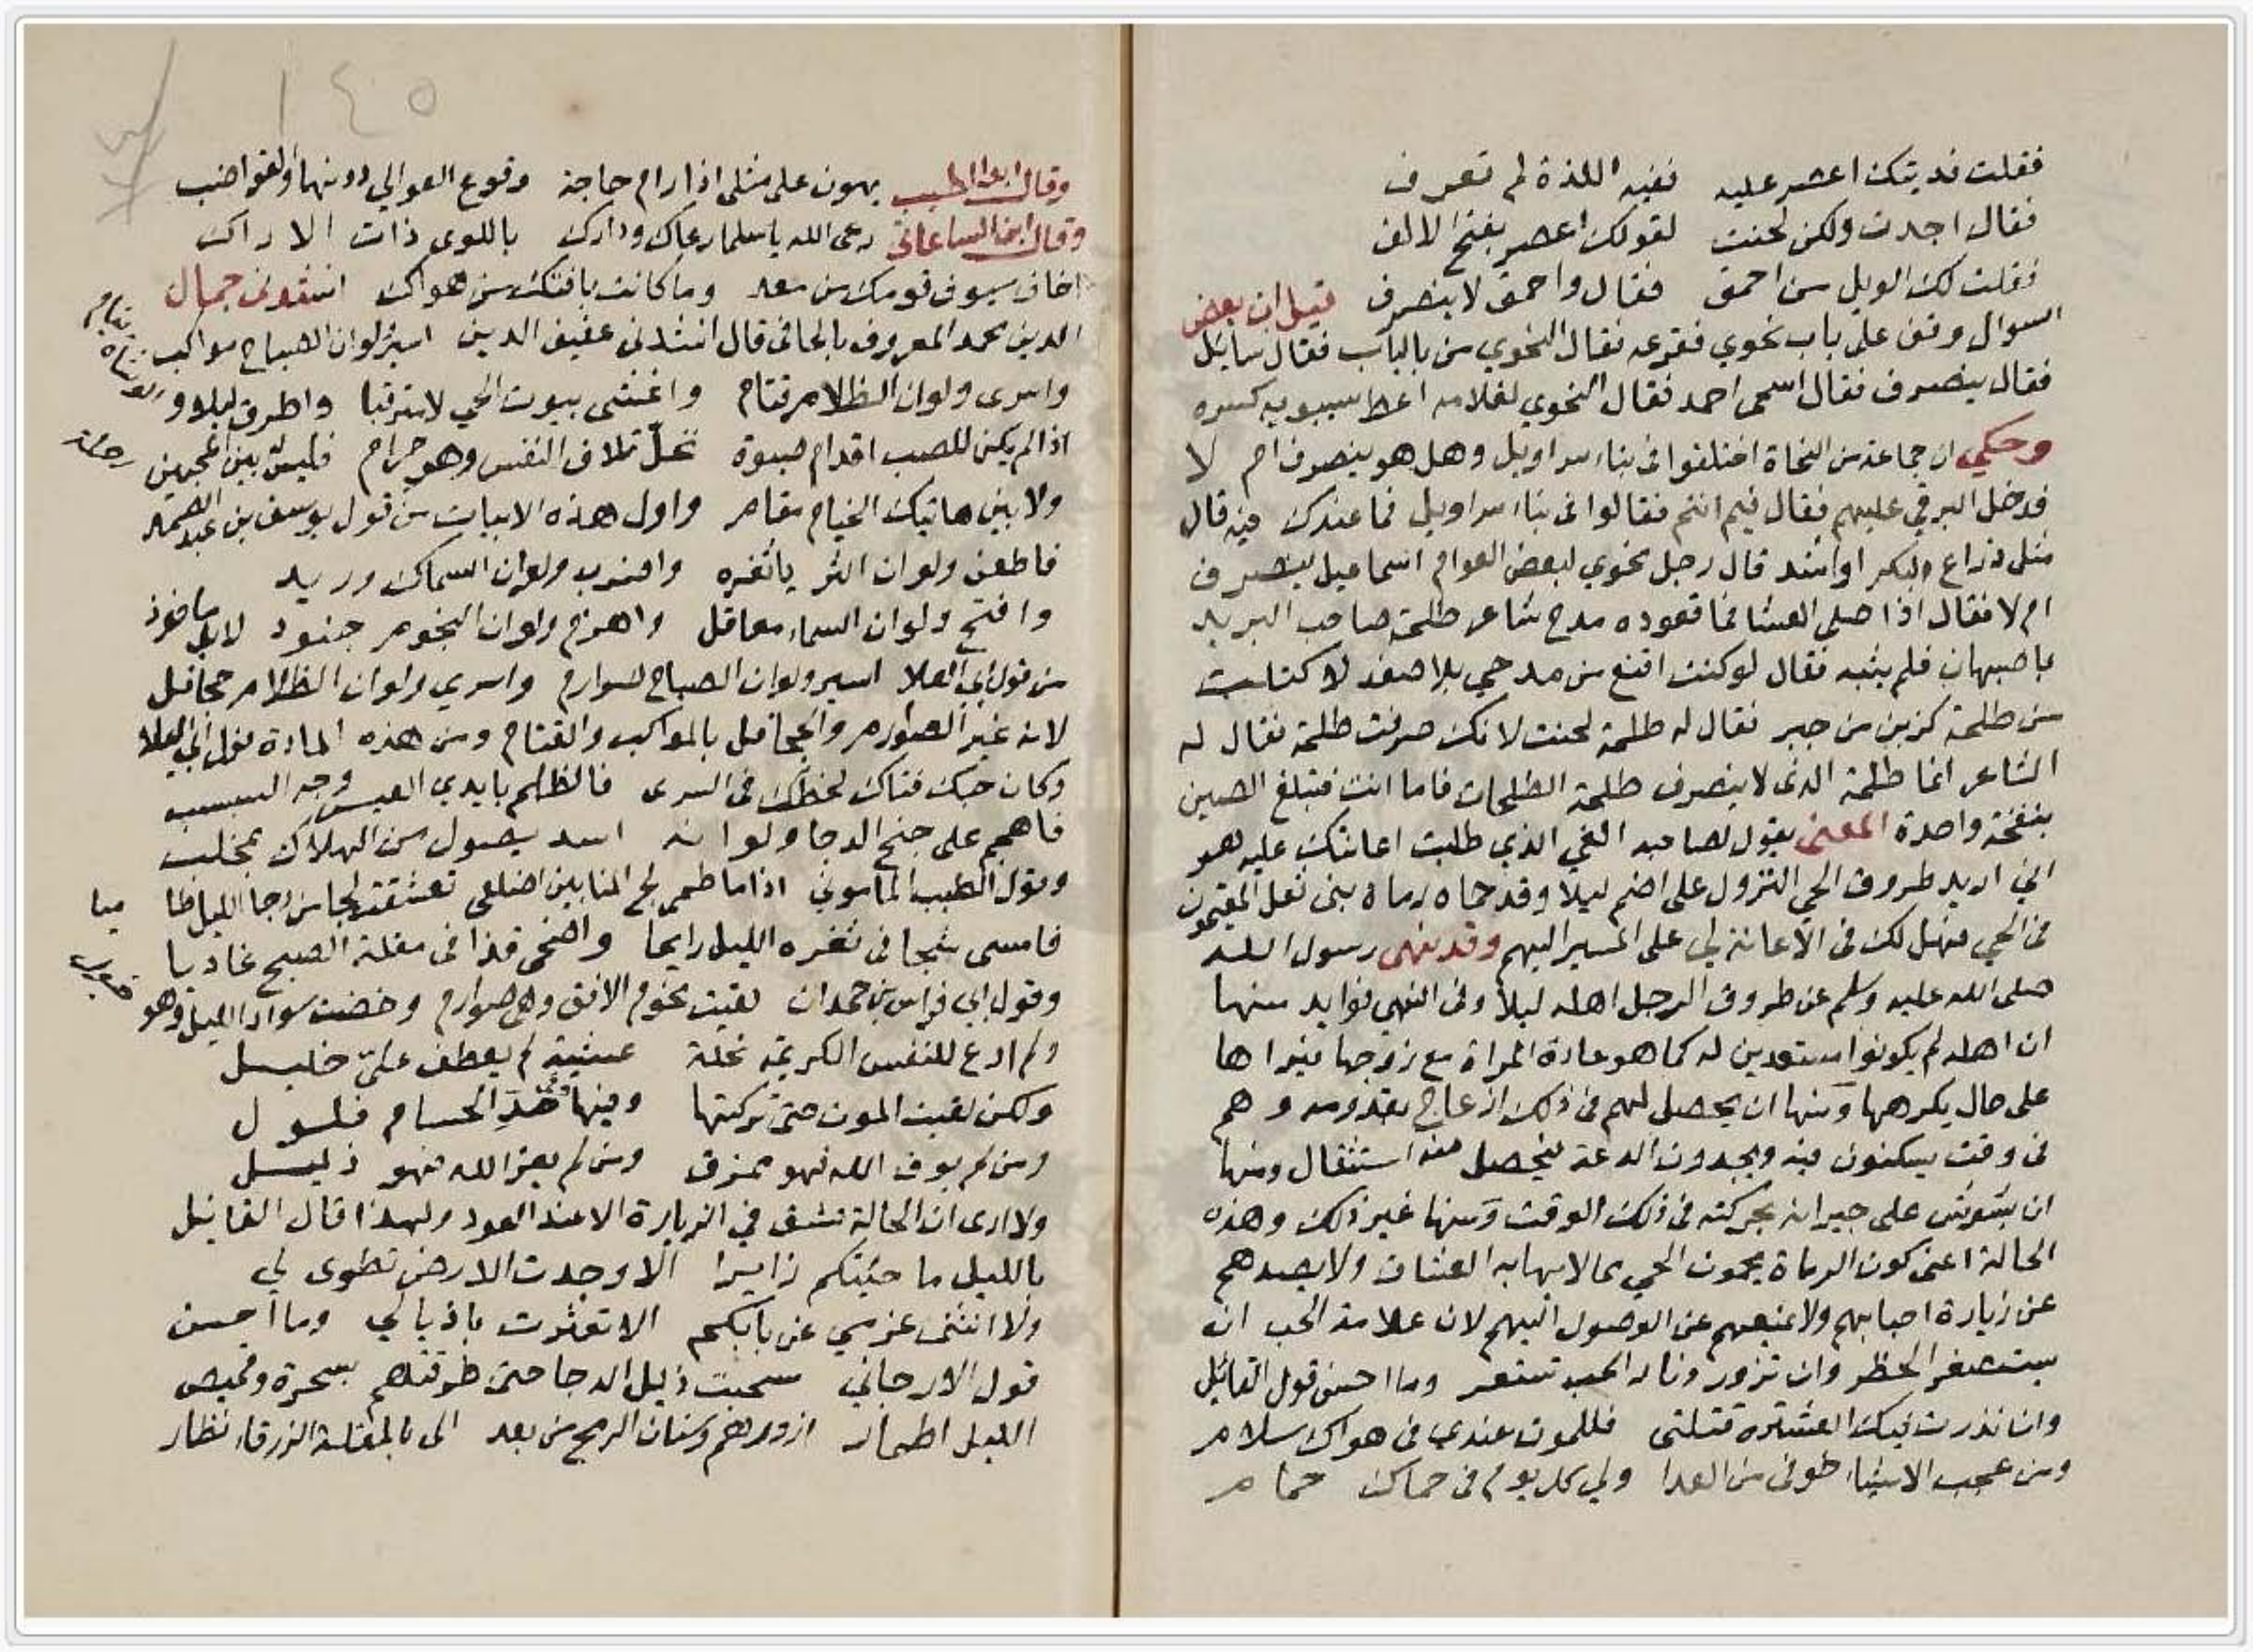 فقلت فديتك اعصر عليه ففيه اللذة لم تعرف
فقال اجدت ولكن لحنت لقولك اعصر بفتح الالف
فقلت لك الويل من احمق فقال واحمق لا ينصرف قيل ان بعض
السوال وقف على باب نحوي فقرعه فقال النحوي من بالباب فقال سايل
فقال ينصرف فقال اسمى احمد فقال النحوي لغلامه اعط سيبويه كسره
وحكي ان جماعة من النحاة اختلفوا فى بناء سراويل وهل هو ينصرف ام لا
فدخل البرقي عليهم فقال فيم انتم فقالوا فى بناء سراويل فما عندك فيه قال
مثل ذراع البكر او اشد قال رجل نحوي لبعض العوام اسماعيل ينصرف
ام لا فقال اذا صلى العشا فما قعوده مدح شاعر طلحة صاحب البريد
باصبهان فلم يثبه فقال لو كنت اقنع من مدحي بلا صفد لاكتلت
من طلحة كزين من جبر فقال له طلحة لحنت لانك صرفت طلحة فقال له
الشاعر انما طلحة الذى لا ينصرف طلحة الطلحات فاما انت فتبلغ الصين
بنفخة واحدة المعنى يقول لصاحبه الغي الذي طلبت اعانتك عليه هو
اني اريد طروق الحي النزول على اضم ليلا وقد حماه رماة بنى ثعل المقيمون
فى الحي فهل لك فى الاعانة لي على المسير اليهم وقد نهى رسول الله
صلى الله عليه وسلم عن طروق الرجل اهله ليلا وفى النهي فوايد منها
ان اهله لم يكونوا مستعدين له كما هو عادة المراة مع زوجها فيراها
على حال يكرهها ومنها ان يحصل لهم فى ذلك ازعاج بقدومه وهم
فى وقت يسكنون فيه ويجدون الدعة فيحصل منه استثقال ومنها
ان يشوش على جيرانه بحركته فى ذلك الوقت ومنها غير ذلك وهذه
الحالة اعنى كون الرماة يحمون الحي مما لا يهابه العشاق ولا يصدهم
عن زيارة احبابهم ولا يمنعهم عن الوصول اليهم لان علامة الحب ان
يستصغر الخطر وان تزور ونار الحب تستعر وما احسن قول القائل
وان نذرت فيك العشيرة قتلتى فللموت عندي فى هواك سلام
ومن عجب الاشياء خوفى من العدا ولي كل يوم فى حماك حمام
١٤٥
وقال ابو الطيب يهون على مثلى اذا رام حاجة وقوع العوالي دونها والقواضب
وقال ابن الساعاتى رعى الله يا سلما رعاك ودارك باللوى ذات الاراك
اخاف سيوف قومك من معد وما كانت بافتك من هواك انشدنى جمال
الدين محمد المعروف بالحافى قال انشدنى عفيف الدين اسير لو ان الصباح مواكب
واسرى ولو ان الظلام قتام واغشى بيوت الحي لا مترقبا واطرق ليلا و
اذا لم يكن للصب اقدام صبوة تحلّ تلاف النفس وهو حرام فليس بين المحبين رحلة
ولا بين هاتيك الخيام مقام واول هذه الابيات من قول يوسف بن عبد الصمد
فاطعن ولو ان الثريا ثغره واضرب ولو ان السماك وريد
وافتح ولو ان السماء معاقل واهزم ولو ان النجوم جنود لابل ماخوذ
من قول ابي العلا اسير ولو ان الصباح صوارم واسري ولو ان الظلام جحافل
لانه غير الصوارم والجحافل بالمواكب والقتام ومن هذه المادة قول ابي العلا
وكان حبك فتاك لحظك فى السرى فالظلم بايدي العيس وجه السبسب
فاهجم على جنح الدجا ولو انه اسد يصول من الهلاك بمخلب
وقول الطيب الماموني اذا ما طمى لج المنا بين اضلعى تعشقت لجا من دجا الليل طاميا
فامسى شجا فى ثغره الليل رايحا واضحى قذا فى مقلة الصبح غاديا
وقول ابي فراس بن حمدان لقيت نجوم الافق وهى صوارم وخضت سواد الليل وهو خيول
ولم ادع للنفس الكريمة نحلة عشية لم يعطف عليّ خليل
ولكن لقيت الموت حتى تركتها وفيها وفى حد الحسام فلول
ومن لم يوق الله فهو ممزق ومن لم يعز الله فهو ذليل
ولا ارى ان الحالة تشق في الزيارة الا عند العود ولهذا قال القائل
بالليل ما جئتكم زايرا الا وجدت الارض تطوى لي
ولا انثنى عزمي عن بابكم الا تعثرت باذيالي وما احسن
قول الارجاني سحبت ذيل الدجا حتى طرقتهم بسحرة وقميص
الليل اطمار ازورهم وسنان الرمح من بعد الى بالمقلة الزرقاء نظار